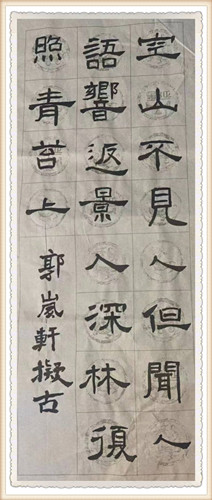 空山不見人但聞人
語響返景入深林復
照青苔上
郭嵐軒擬古